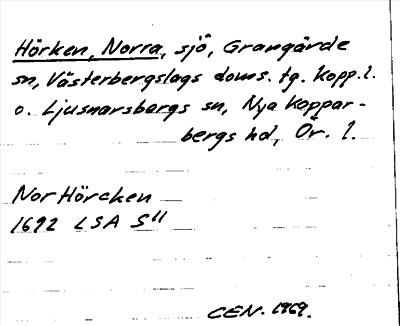 Hörken, Norra, sjö, Grangärde
sn, Västerbergslags doms. tg. Kopp. l.
o. Ljusnarsbergs sn, Nya Koppar-
bergs hd, Ör. l.
Nor Hörcken
1692 LSA S11
CEN. 1969.